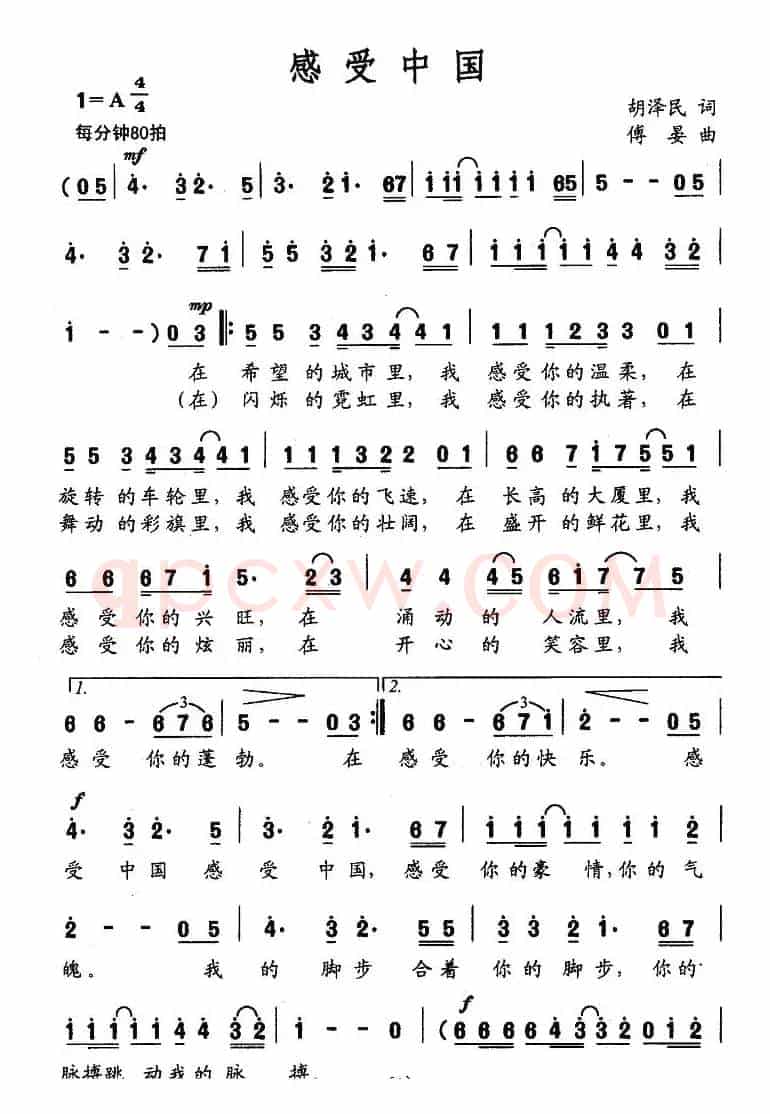 感受中国
1=A 4/4
胡泽民 词
每分钟80拍
傅晏 曲
mf
(05 4· 32· 5 3· 21· 67 1111111 65 5 - - 05
4· 32· 71 55321· 67 1111144 32
mp
1 - - )03 553434441 111233301
在希望的城市里，我 感受你的温柔，在
（在）闪烁的霓虹里，我 感受你的执著，在
553434441 111322201 667175551
旋转的车轮里，我 感受你的飞速，在 长高的大厦里，我
舞动的彩旗里，我 感受你的壮阔，在 盛开的鲜花里，我
666715· 23 444561775
感受你的兴旺，在 涌动的人流里，我
感受你的炫丽，在 开心的笑容里，我
1. 2.
66 - 676 5 - - 03 66 - 671 2 - - 05
3 3
感受 你的蓬勃。 在 感受 你的快乐。 感
f
4· 32· 5 3· 21· 67 111111112
受中国感受中国，感受你的豪情，你的气
2 - - 05 4· 32· 55 3321· 67
魄。 我的脚步合着你的脚步，你的
f
111114432 1 - 0 (66664332012
脉搏跳 动我的脉 搏
qpcxw.COM